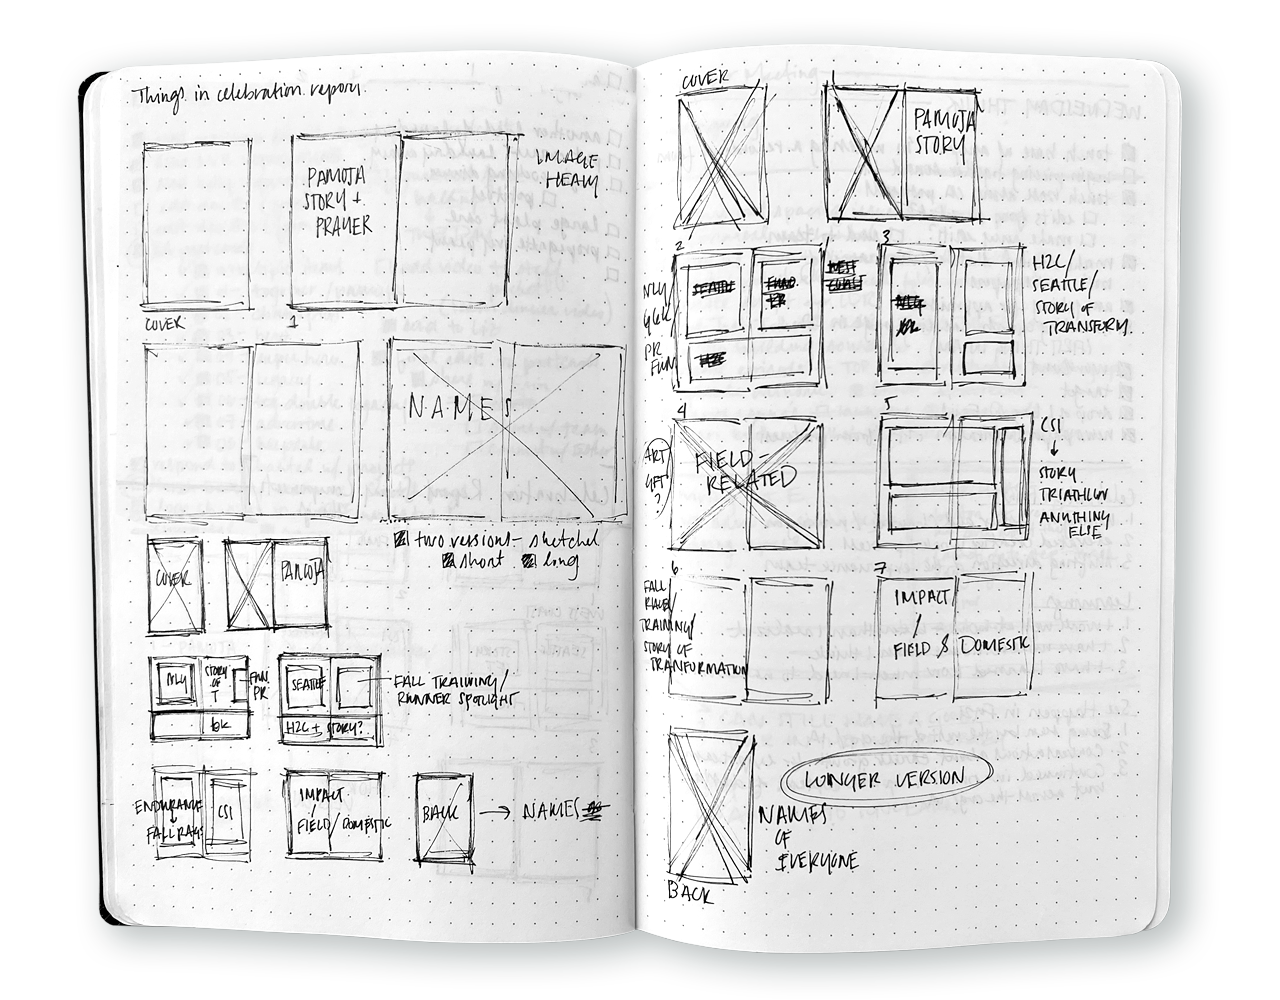 Things in celebration report.
PAMOJA
STORY +
PRAYER
IMAGE
HEAVY
COVER
1
NAMES
two versions - sketched
short long
COVER
PAMOJA
NLY
STORY
OF
T
FUN.
PR
6K
SEATTLE
H2C + STORY?
FALL TRAINING/
RUNNER SPOTLIGHT
ENDURANCE
CSI
IMPACT
/
FIELD/DOMESTIC
BACK
→ NAMES
COVER
PAMOJA
STORY
2
SEATTLE
NLY
PR
FUN
3
H2C/
SEATTLE/
STORY OF
TRANSFORM.
4
ART
GFT
?
FIELD-
RELATED
5
CSI
↓
STORY
TRIATHLON
ANYTHING
ELSE
6
FALL
TRAINING/
STORY OF
TRANFORMATION
7
IMPACT
/
FIELD & DOMESTIC
BACK
LONGER VERSION
NAMES
OF
EVERYONE